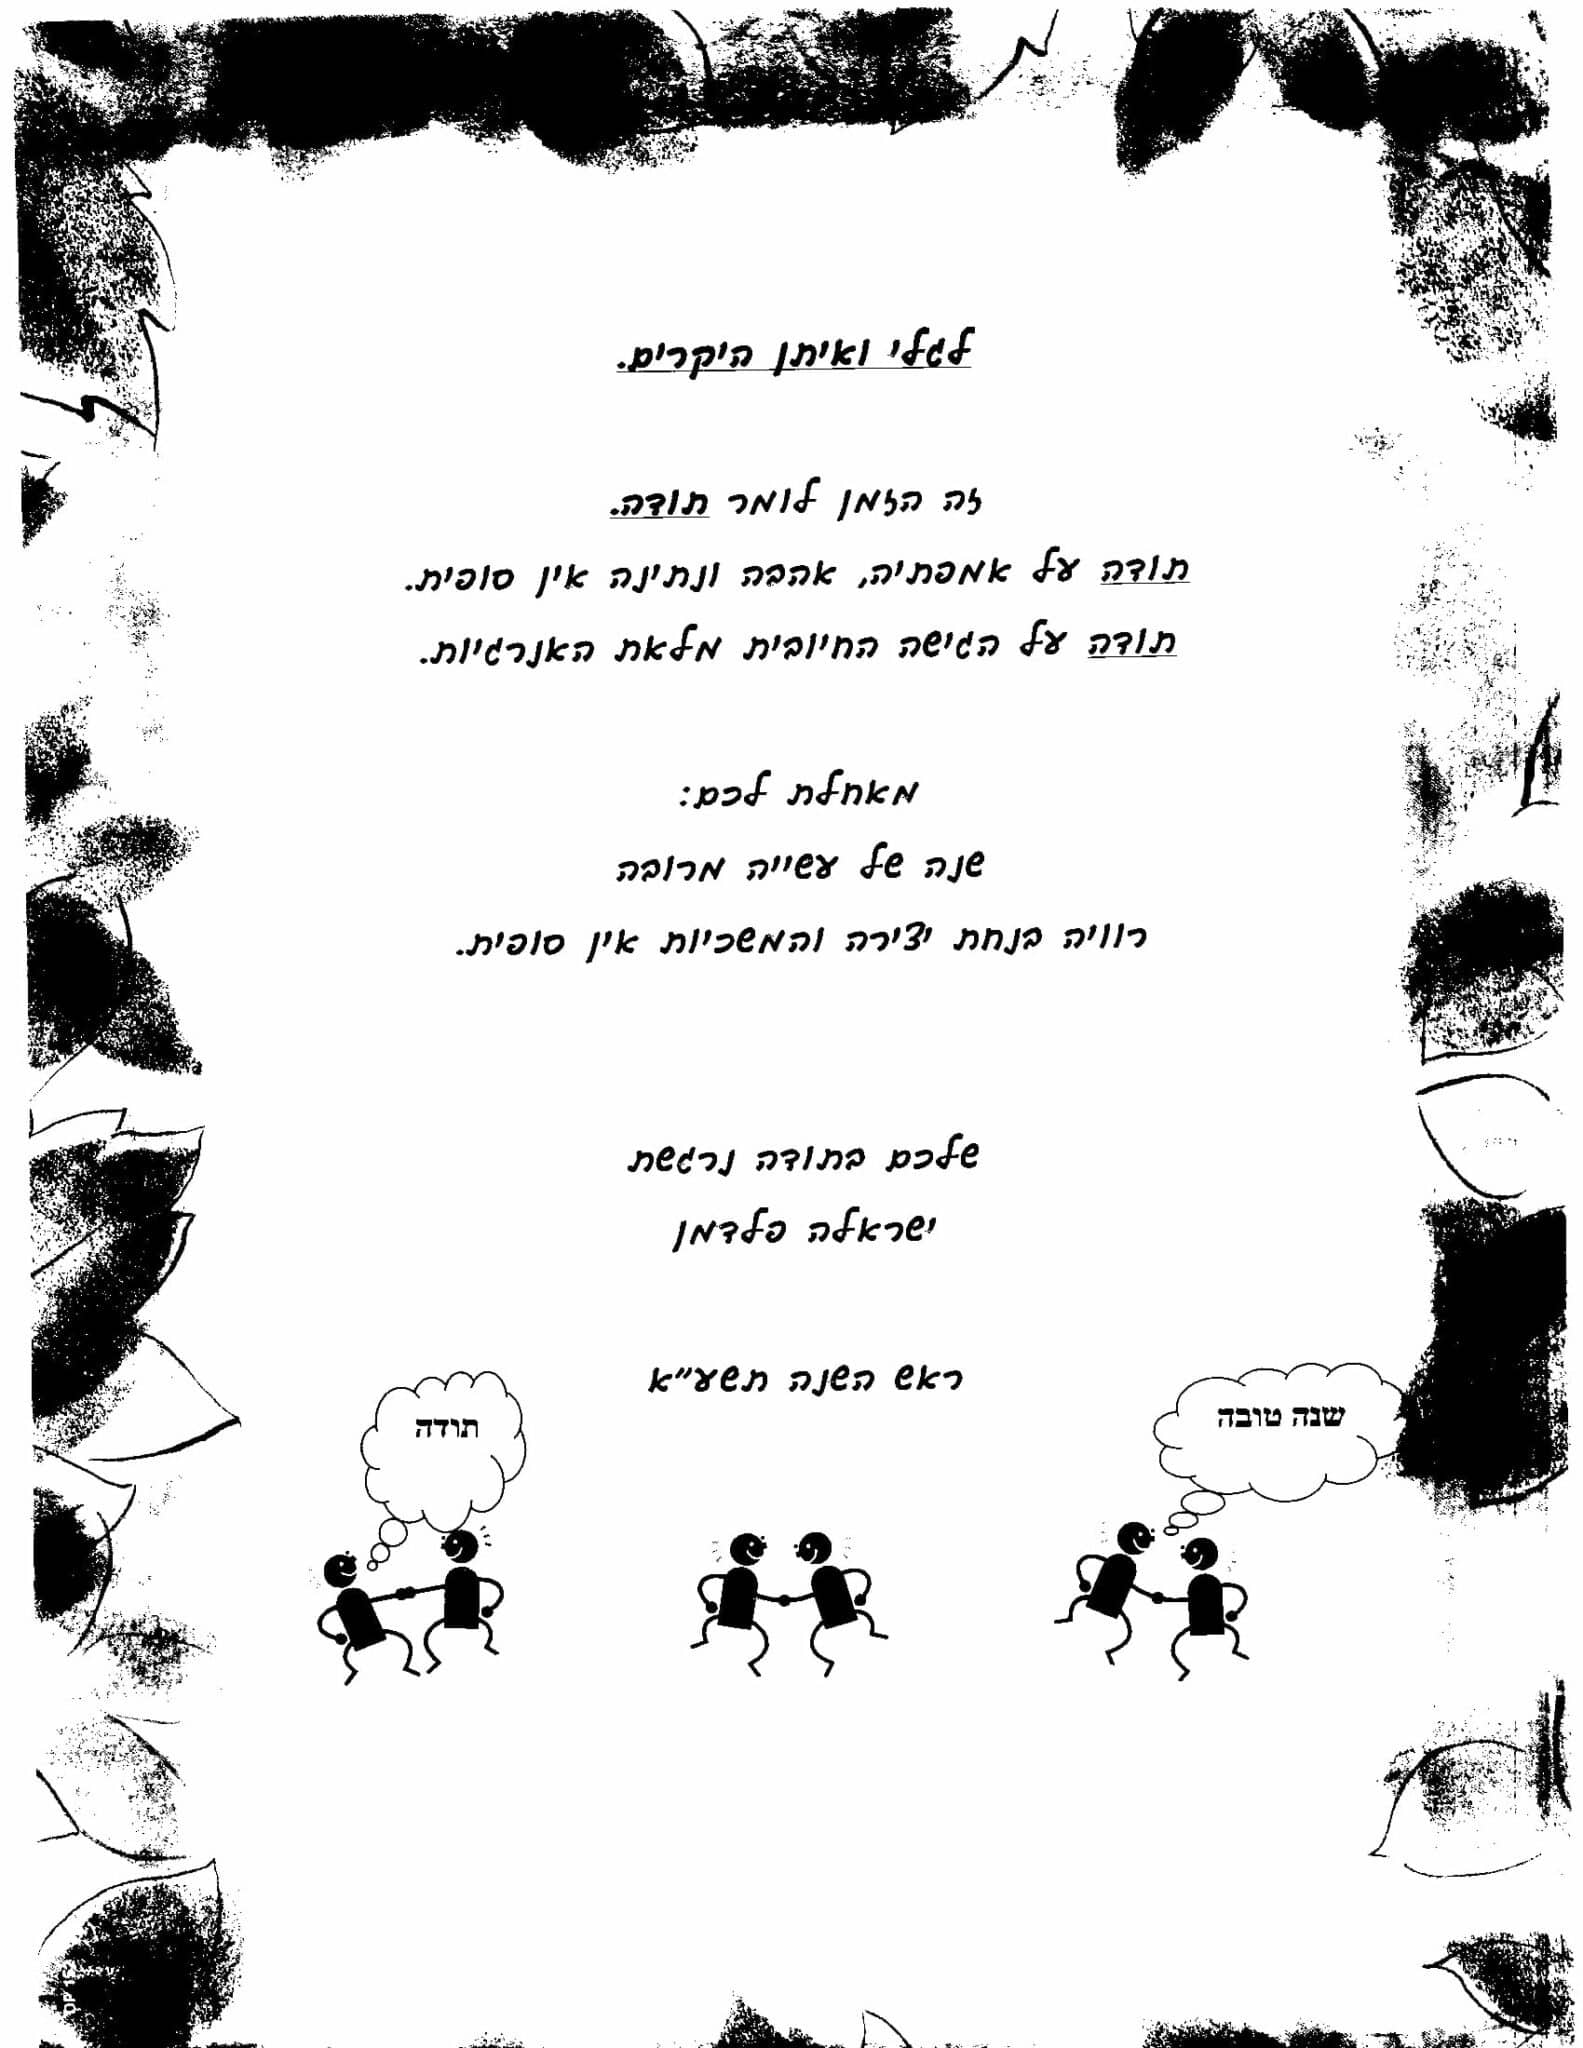 לגלי ואיתן היקרים.
זה הזמן לומר תודה.
תודה על אמפתיה, אהבה ונתינה אין סופית.
תודה על הגישה החיובית מלאת האנרגיות.
מאחלת לכם:
שנה של עשייה מרובה
רוויה בנחת יצירה והמשכיות אין סופית.
שלכם בתודה נרגשת
ישראלה פלדמן
ראש השנה תשע״א
שנה טובה
תודה